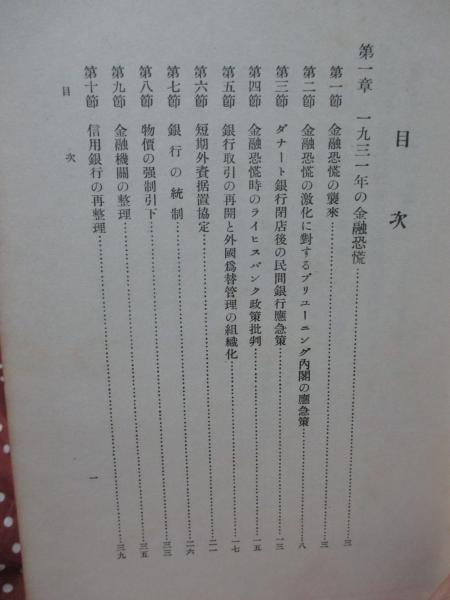 目次
第一章 一九三一年の金融恐慌……三
第一節 金融恐慌の襲來……三
第二節 金融恐慌の激化に對するブリューニング內閣の應急策……八
第三節 ダナート銀行閉店後の民間銀行應急策……一三
第四節 金融恐慌時のライヒスバンク政策批判……一五
第五節 銀行取引の再開と外國爲替管理の組織化……一七
第六節 短期外資据置協定……二一
第七節 銀行の統制……二六
第八節 物價の强制引下……三三
第九節 金融機關の整理……三五
第十節 信用銀行の再整理……三九
目次
一